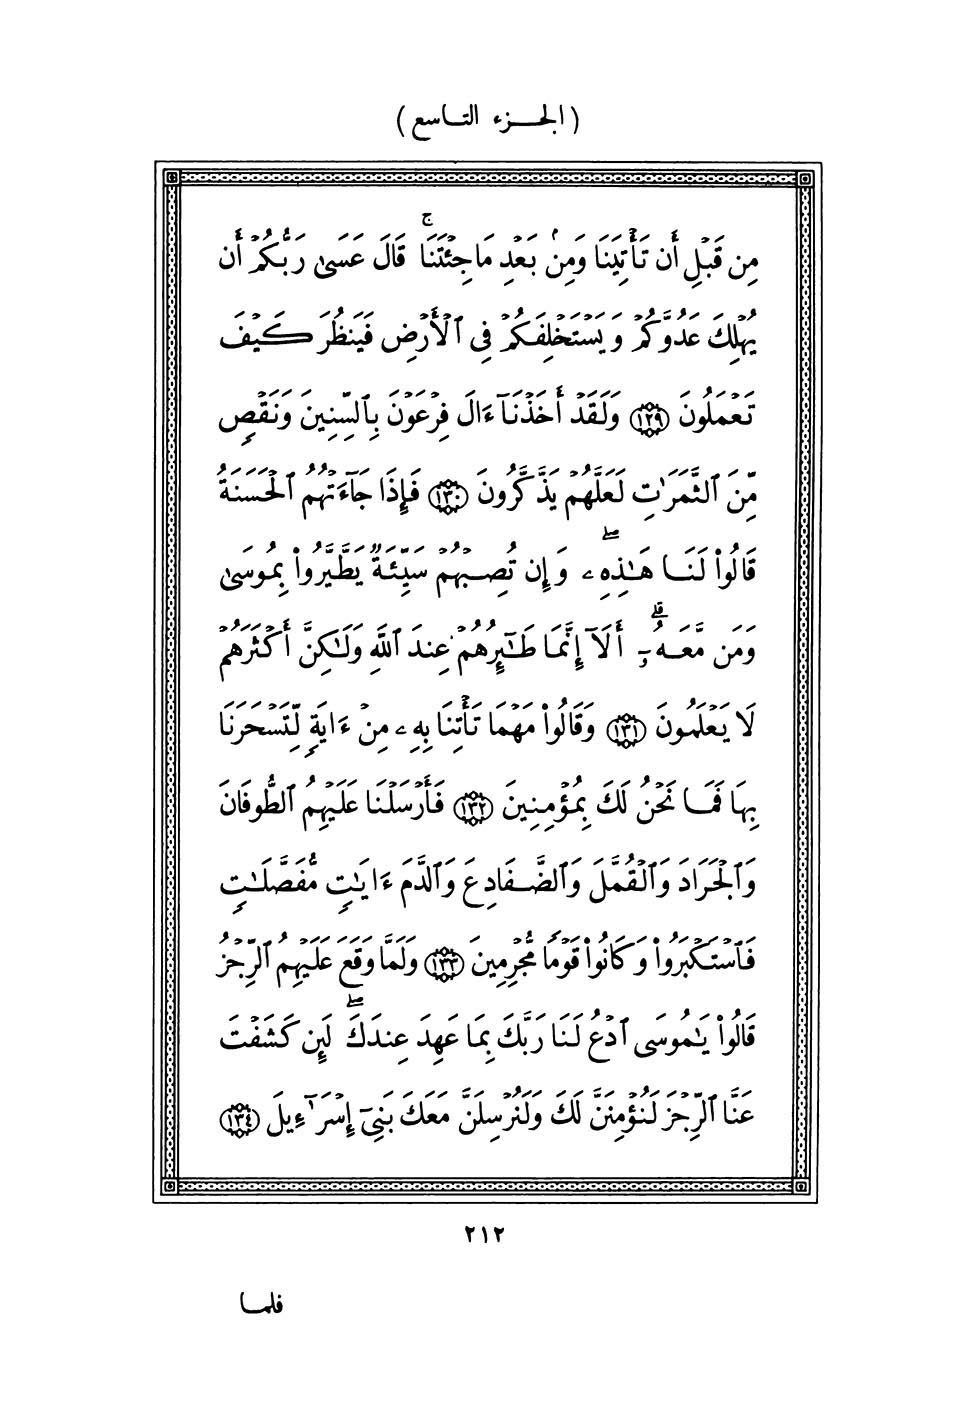 (الجزء التاسع)
مِن قَبْلِ أَن تَأْتِيَنَا وَمِنۢ بَعْدِ مَا جِئْتَنَاۚ قَالَ عَسَىٰ رَبُّكُمْ أَن
يُهْلِكَ عَدُوَّكُمْ وَيَسْتَخْلِفَكُمْ فِى ٱلْأَرْضِ فَيَنظُرَ كَيْفَ
تَعْمَلُونَ ١٢٩ وَلَقَدْ أَخَذْنَآ ءَالَ فِرْعَوْنَ بِٱلسِّنِينَ وَنَقْصٍ
مِّنَ ٱلثَّمَرَٰتِ لَعَلَّهُمْ يَذَّكَّرُونَ ١٣٠ فَإِذَا جَآءَتْهُمُ ٱلْحَسَنَةُ
قَالُوا۟ لَنَا هَـٰذِهِۦۖ وَإِن تُصِبْهُمْ سَيِّئَةٌ يَطَّيَّرُوا۟ بِمُوسَىٰ
وَمَن مَّعَهُۥٓۗ أَلَآ إِنَّمَا طَـٰٓئِرُهُمْ عِندَ ٱللَّهِ وَلَـٰكِنَّ أَكْثَرَهُمْ
لَا يَعْلَمُونَ ١٣١ وَقَالُوا۟ مَهْمَا تَأْتِنَا بِهِۦ مِنْ ءَايَةٍ لِّتَسْحَرَنَا
بِهَا فَمَا نَحْنُ لَكَ بِمُؤْمِنِينَ ١٣٢ فَأَرْسَلْنَا عَلَيْهِمُ ٱلطُّوفَانَ
وَٱلْجَرَادَ وَٱلْقُمَّلَ وَٱلضَّفَادِعَ وَٱلدَّمَ ءَايَـٰتٍ مُّفَصَّلَـٰتٍ
فَٱسْتَكْبَرُوا۟ وَكَانُوا۟ قَوْمًا مُّجْرِمِينَ ١٣٣ وَلَمَّا وَقَعَ عَلَيْهِمُ ٱلرِّجْزُ
قَالُوا۟ يَـٰمُوسَى ٱدْعُ لَنَا رَبَّكَ بِمَا عَهِدَ عِندَكَۖ لَئِن كَشَفْتَ
عَنَّا ٱلرِّجْزَ لَنُؤْمِنَنَّ لَكَ وَلَنُرْسِلَنَّ مَعَكَ بَنِىٓ إِسْرَٰٓءِيلَ ١٣٤
٢١٢
فلما